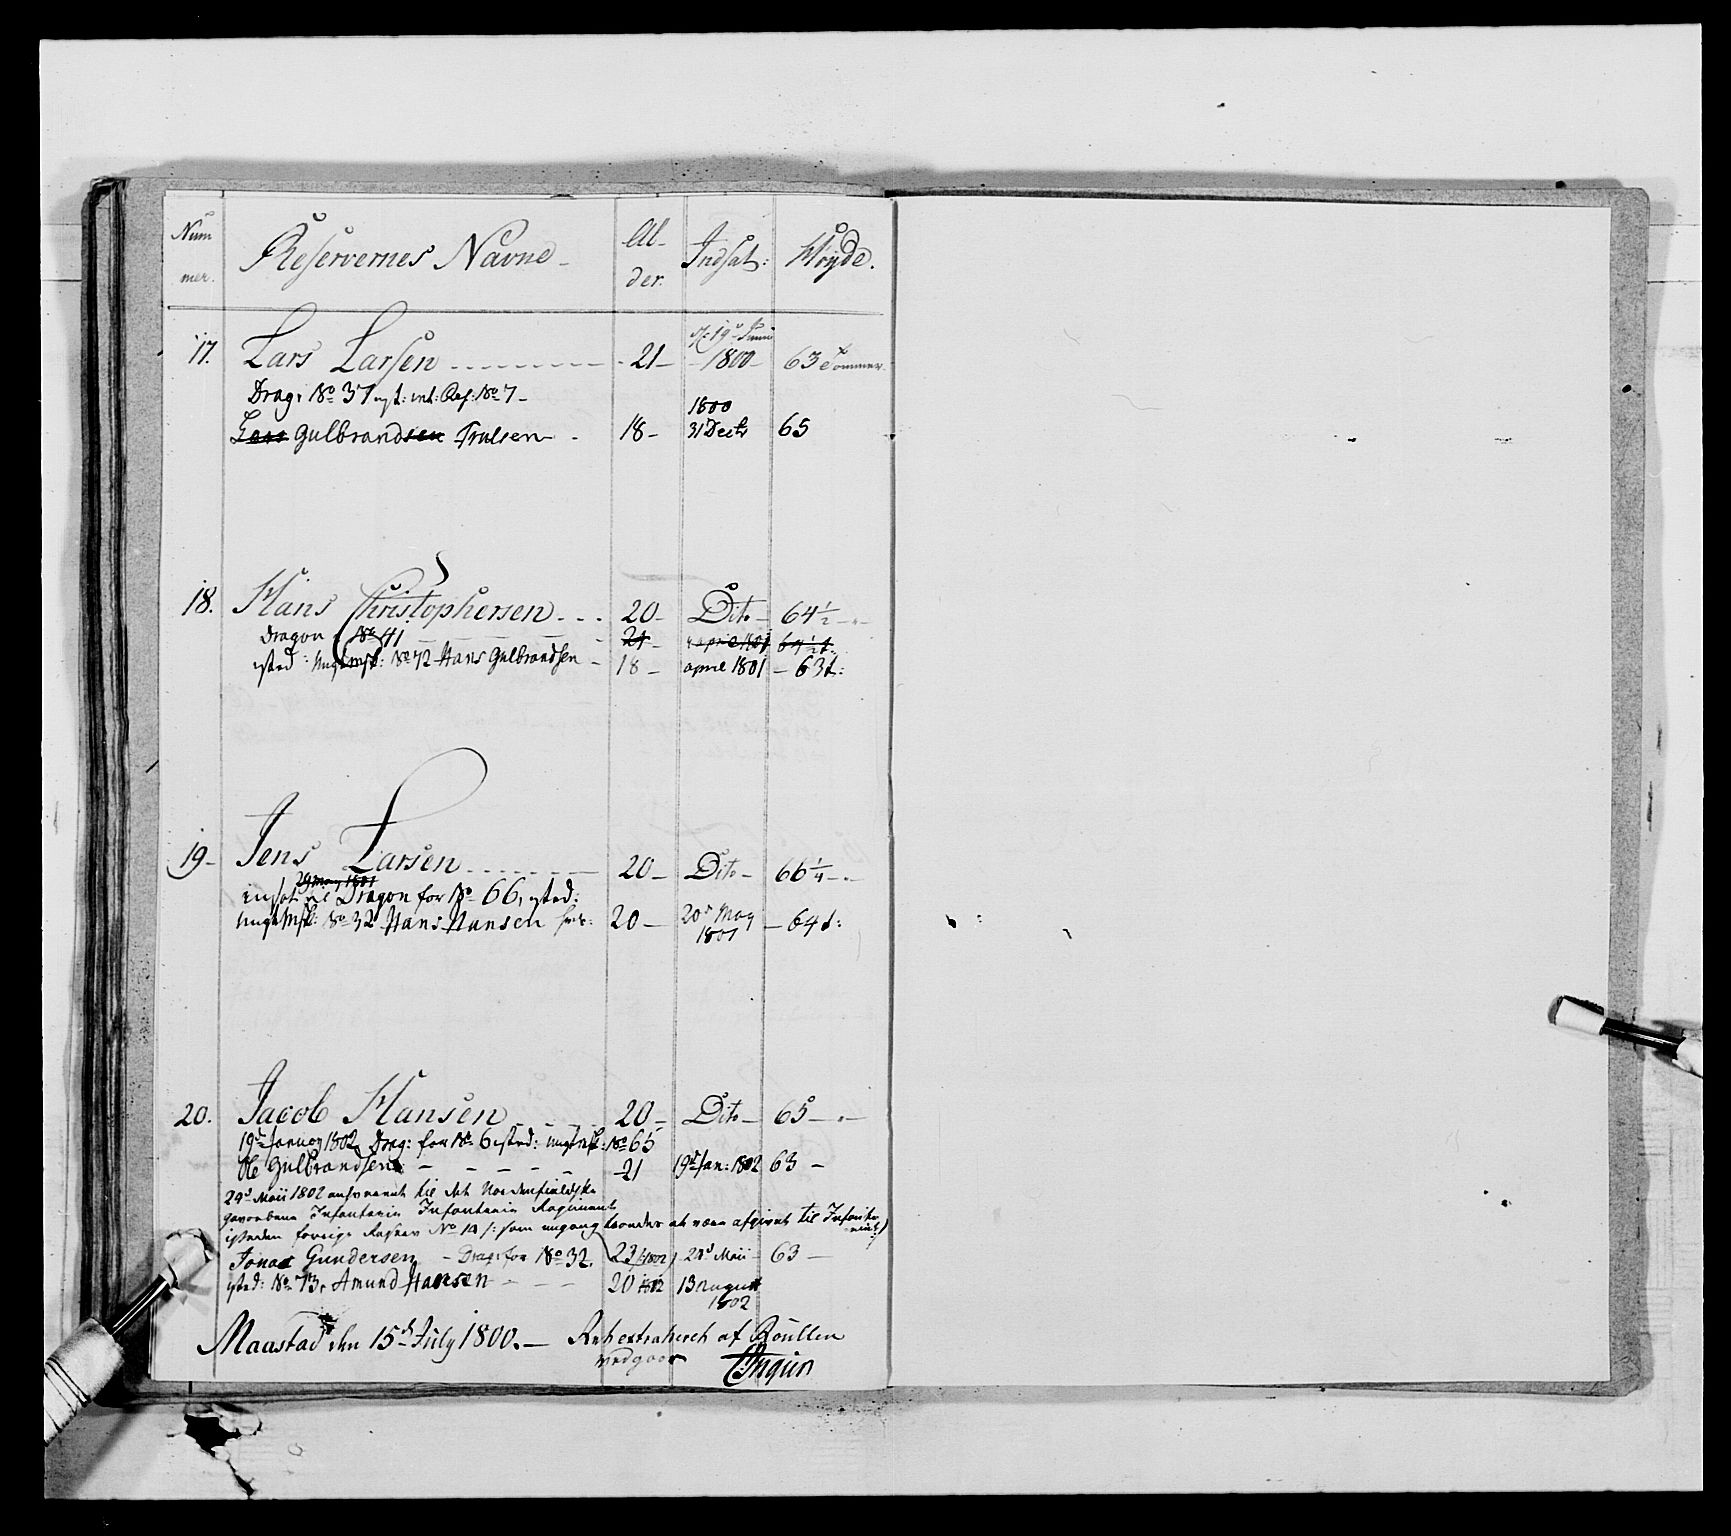 Num
mer.
Reservernes Navne
Al-
der.
Indsat:
Höyde.
17. Lars Larsen - 21 - d: 19d Junii 1800 - 63 Tommer
Drag: No 37 ist: int: Res: No 7 -
Lars Gulbrandsen Trulsen - 18 - 1800 31 Decbr 65
18. Hans Christophersen - 20 - Dito - 64 1/2 -
Dragon No 41 - 21 - april 1801 64 1/2 t:
isted: No 72 Hans Gulbrandsen - 18 - april 1801 - 63 t:
19 - Jens Larsen - 20 - Dito - 66 1/4 -
29 May 1801
insat til Dragon for No 66, isted:
No 32 Hans Hansen 20 - 20d May 1801 - 64 t:
20. Jacob Hansen - 20 - Dito - 65 -
19d January 1802 Drag: for No 6 isted: No 65
Ole Gulbrandsen - 21 19d Jan: 1802 63 -
29d Maii 1802 til det Nordenfieldske
Infanterie Regiment
isteden forrige No 10 /: som at være afgivet til Infanter
Jonas Gundersen - Drag: for No 32. 23 (1802) 29d Maii - 63 -
isted: No 73, Amund Hansen - 20 1802 13 august 1802
Maastad den 15d July 1800. - af Roullen
vedgaar